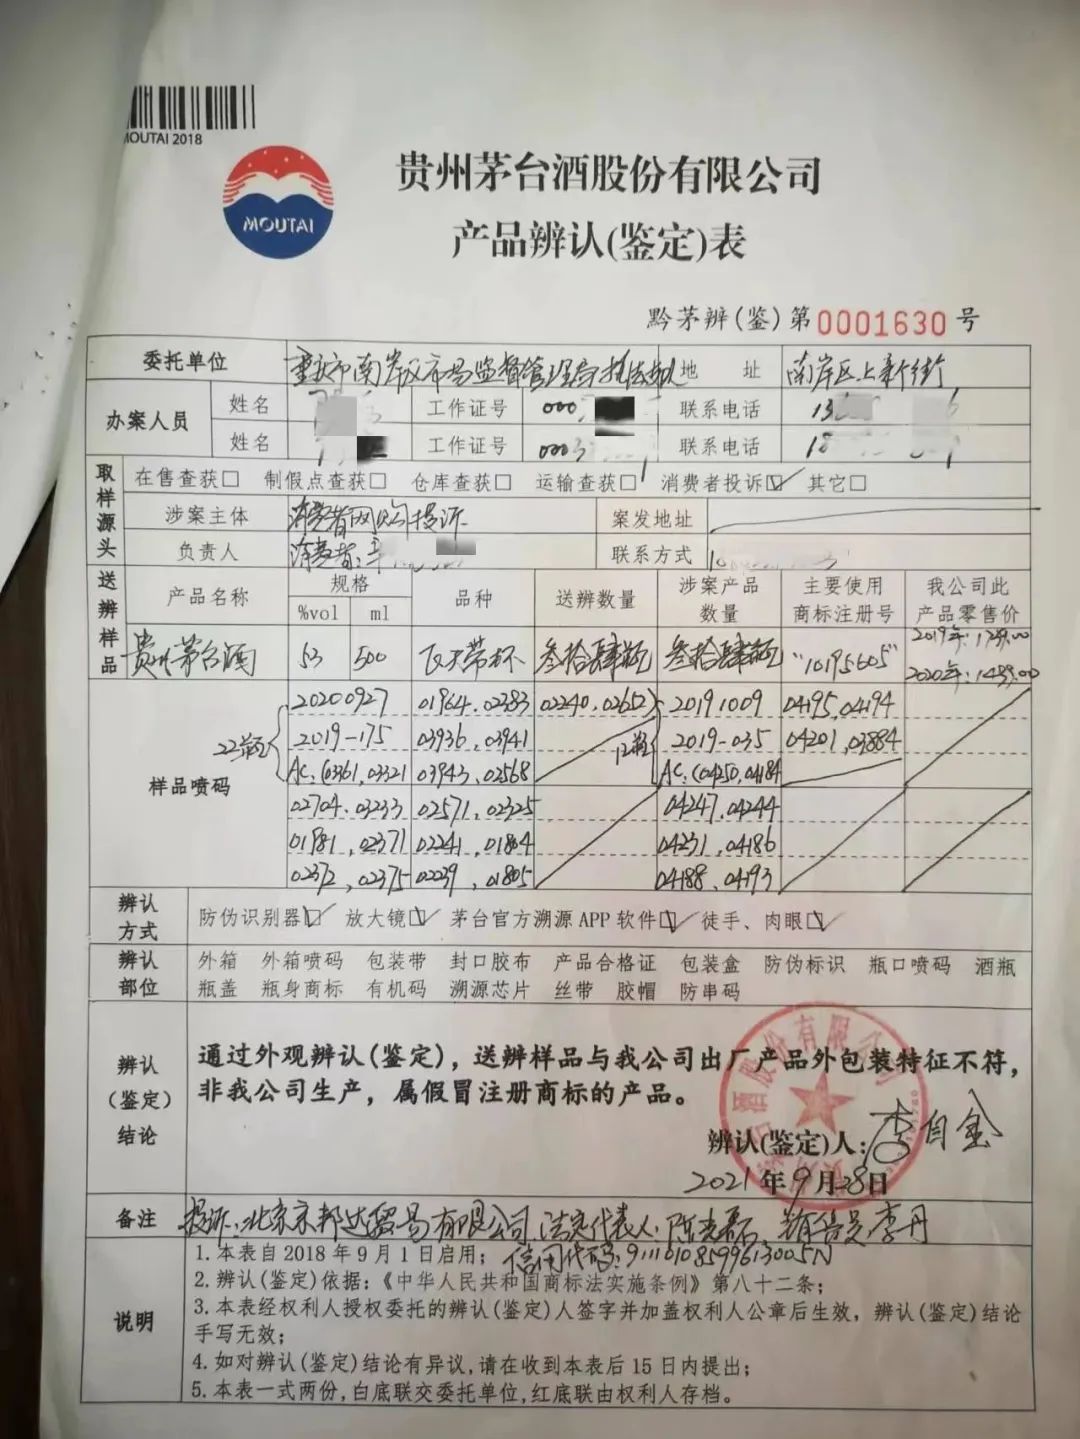 MOUTAI 2018
MOUTAI
贵州茅台酒股份有限公司
产品辨认(鉴定)表
黔茅辨(鉴)第0001630号
委托单位 重庆市南岸区市场监督管理局执法支队 地 址 南岸区上新街
办案人员 姓名 工作证号 000 联系电话
姓名 工作证号 000 联系电话
取样源头 在售查获□ 制假点查获□ 仓库查获□ 运输查获□ 消费者投诉☑ 其它□
涉案主体 消费者网购投诉 案发地址
负责人 消费者: 联系方式
送辨样品 产品名称 规格 %vol ml 品种 送辨数量 涉案产品数量 主要使用商标注册号 我公司此产品零售价
贵州茅台酒 53 500 飞天带杯 叁拾肆瓶 叁拾肆瓶 "10195605" 2019年:1299.00
2020年:1499.00
样品喷码 22瓶 20200927 01964.02383 02240.02652) 12瓶 20191009 04195,04194
2019-175 03936,03941 2019-035 04201,03884
AC:(03361,03321 03943,02568 AC:(04250,04184
02704.03233 02571.02325 04247,04244
01981,02371 02241,01804 04231,04186
02372,02375 02239,01805 04188,04193
辨认方式 防伪识别器☑ 放大镜☑ 茅台官方溯源APP软件☑ 徒手、肉眼☑
辨认部位 外箱 外箱喷码 包装带 封口胶布 产品合格证 包装盒 防伪标识 瓶口喷码 酒瓶
瓶盖 瓶身商标 有机码 溯源芯片 丝带 胶帽 防串码
辨认(鉴定)结论 通过外观辨认(鉴定)，送辨样品与我公司出厂产品外包装特征不符，
非我公司生产，属假冒注册商标的产品。
辨认(鉴定)人:李自金
2021年9月28日
备注 投诉:北京京邦达贸易有限公司.法定代表人:陈 销售员李丹
信用代码:91110108599613005N
说明 1.本表自2018年9月1日启用；
2.辨认(鉴定)依据:《中华人民共和国商标法实施条例》第八十二条；
3.本表经权利人授权委托的辨认(鉴定)人签字并加盖权利人公章后生效，辨认(鉴定)结论
手写无效；
4.如对辨认(鉴定)结论有异议,请在收到本表后15日内提出；
5.本表一式两份,白底联交委托单位,红底联由权利人存档。